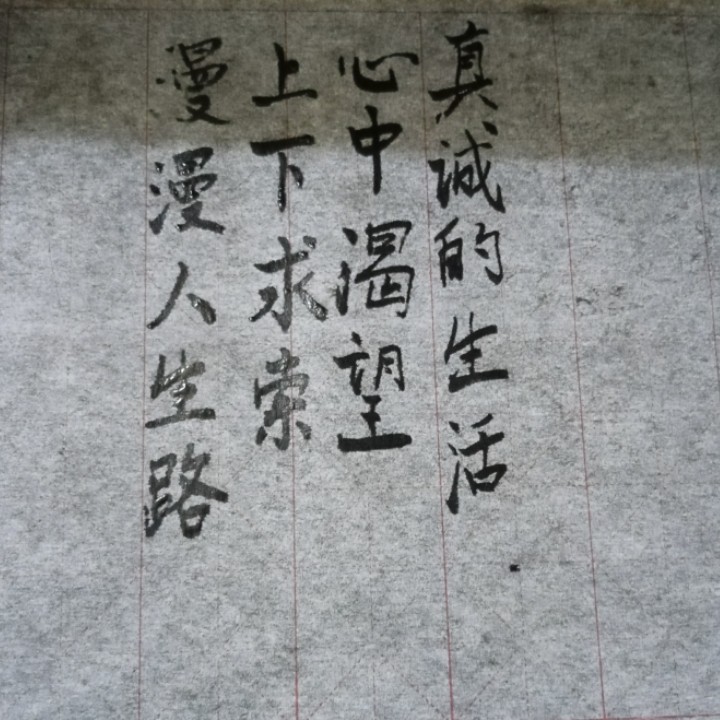 漫漫人生路
上下求索
心中渴望
真诚的生活